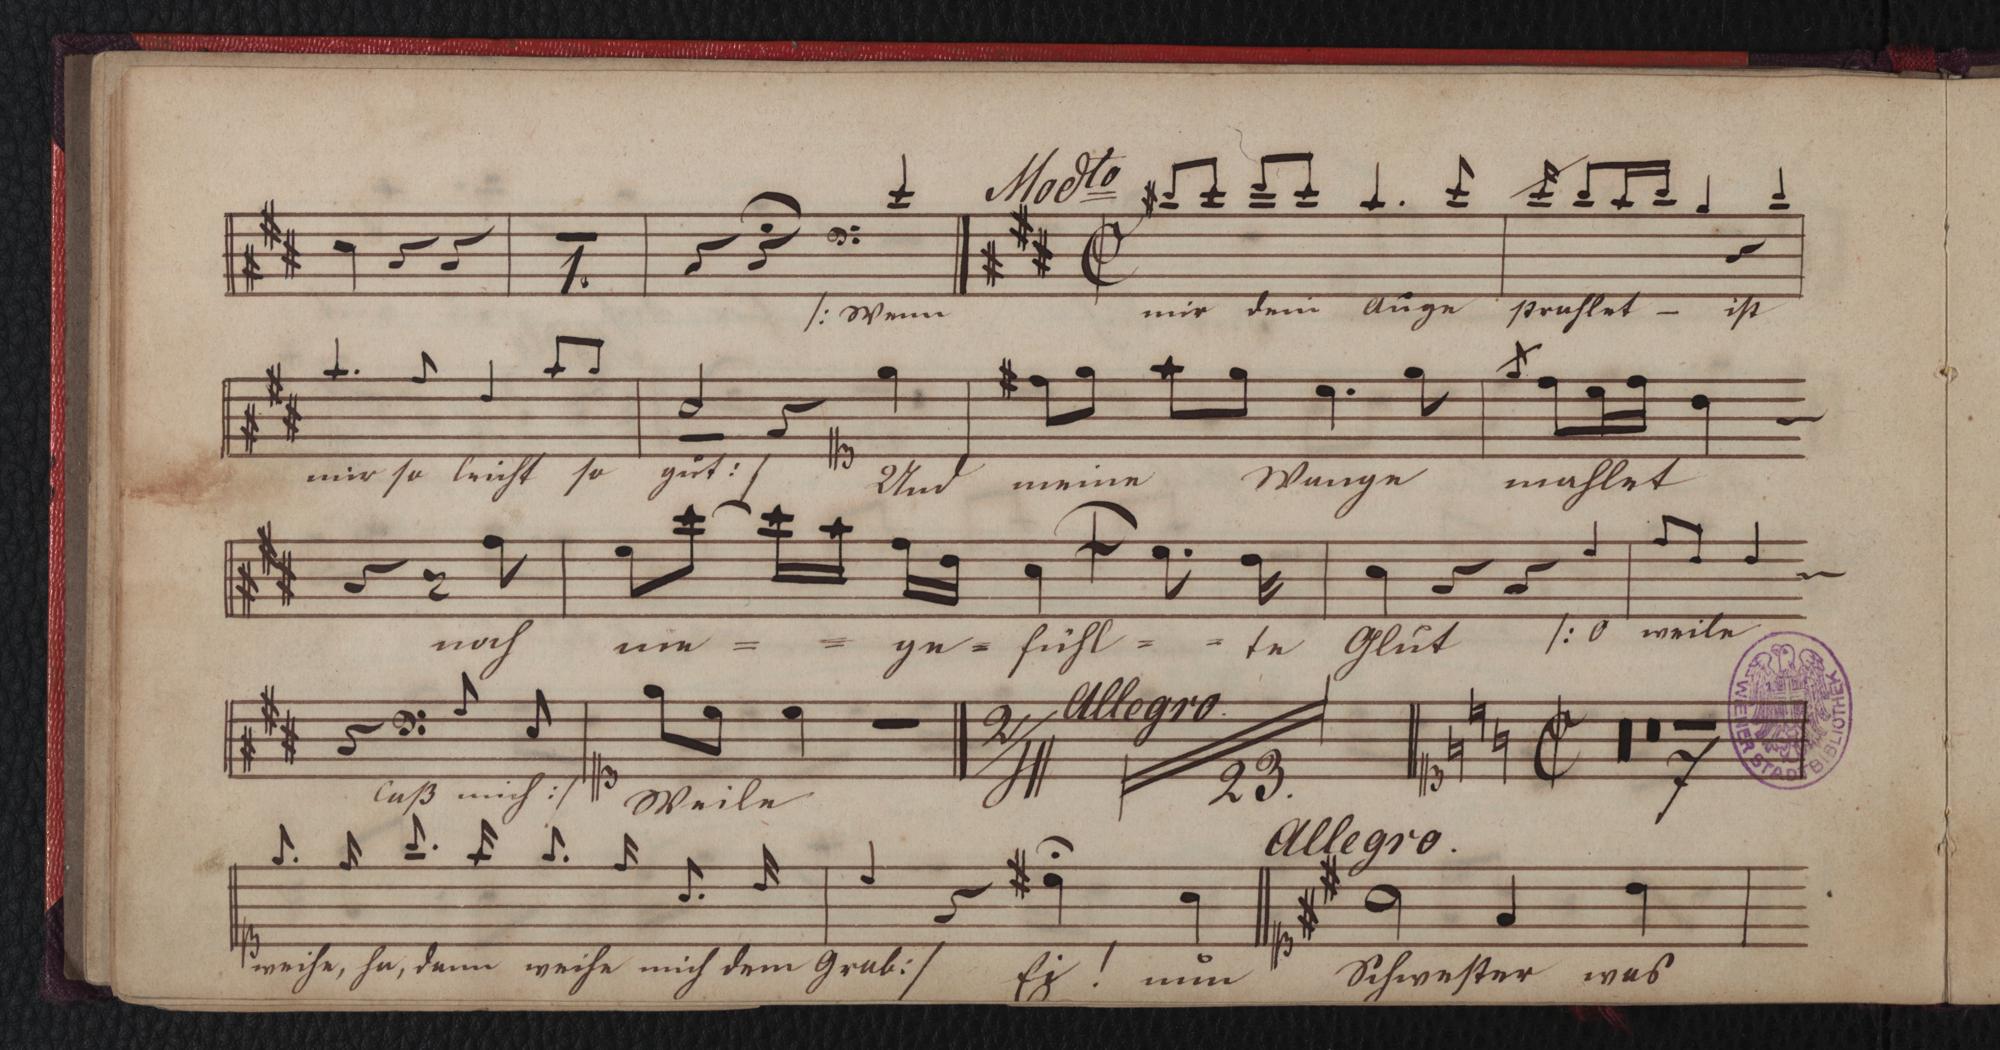 Mod<sup>to</sup>
1.
/: Wenn mir dein Auge strahlet – ist
mir so leicht so gut :/ Und meine Wange mahlet
noch nie = = ge = fühl = = te Glut /: O weile
Allegro.
23. 7
laß mich :/ Weile
WIENER STADTBIBLIOTHEK
Allegro.
weihe, ha, dann weihe mich dem Grab :/ Ei ! nun Schwester was